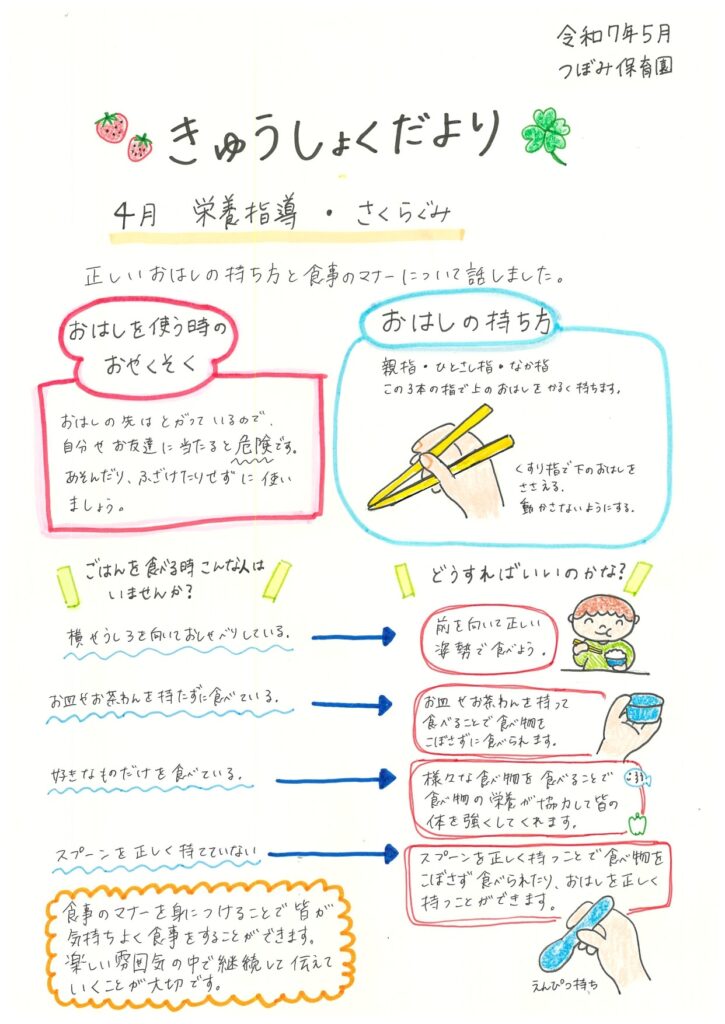 令和7年5月
つぼみ保育園
きゅうしょくだより
4月 栄養指導・さくらぐみ
正しいおはしの持ち方と食事のマナーについて話しました。
おはしを使う時の
おやくそく
おはしの先はとがっているので、
自分やお友達に当たると危険です。
あそんだり、ふざけたりせずに使い
ましょう。
おはしの持ち方
親指・ひとさし指・なか指
この3本の指で上のおはしをかるく持ちます。
くすり指で下のおはしを
ささえる。
動かさないようにする。
ごはんを食べる時こんな人は
いませんか?
どうすればいいのかな?
横やうしろを向いておしゃべりしている。
前を向いて正しい
姿勢で食べよう。
お皿やお茶わんを持たずに食べている。
お皿やお茶わんを持って
食べることで食べ物を
こぼさずに食べられます。
好きなものだけを食べている。
様々な食べ物を食べることで
食べ物の栄養が協力して皆の
体を強くしてくれます。
スプーンを正しく持てていない
スプーンを正しく持つことで食べ物を
こぼさず食べられたり、おはしを正しく
持つことができます。
えんぴつ持ち
食事のマナーを身につけることで皆が
気持ちよく食事をすることができます。
楽しい雰囲気の中で継続して伝えて
いくことが大切です。